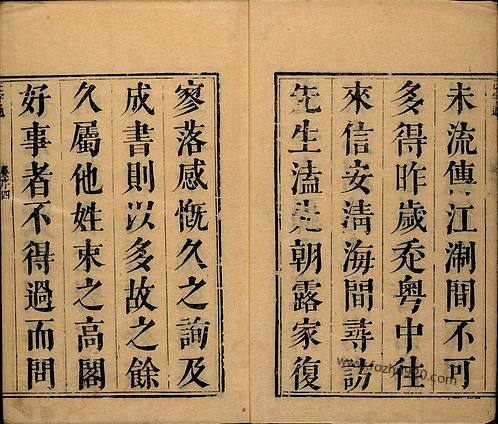 未流傳江淛間不可
多得昨歲來粵中往
來信安淸海間尋訪
先生溘先朝露家復
寥落感慨久之詢及
成書則以多故之餘
久屬他姓束之高閣
好事者不得過而問
卷廿四
www.fozhu920.com